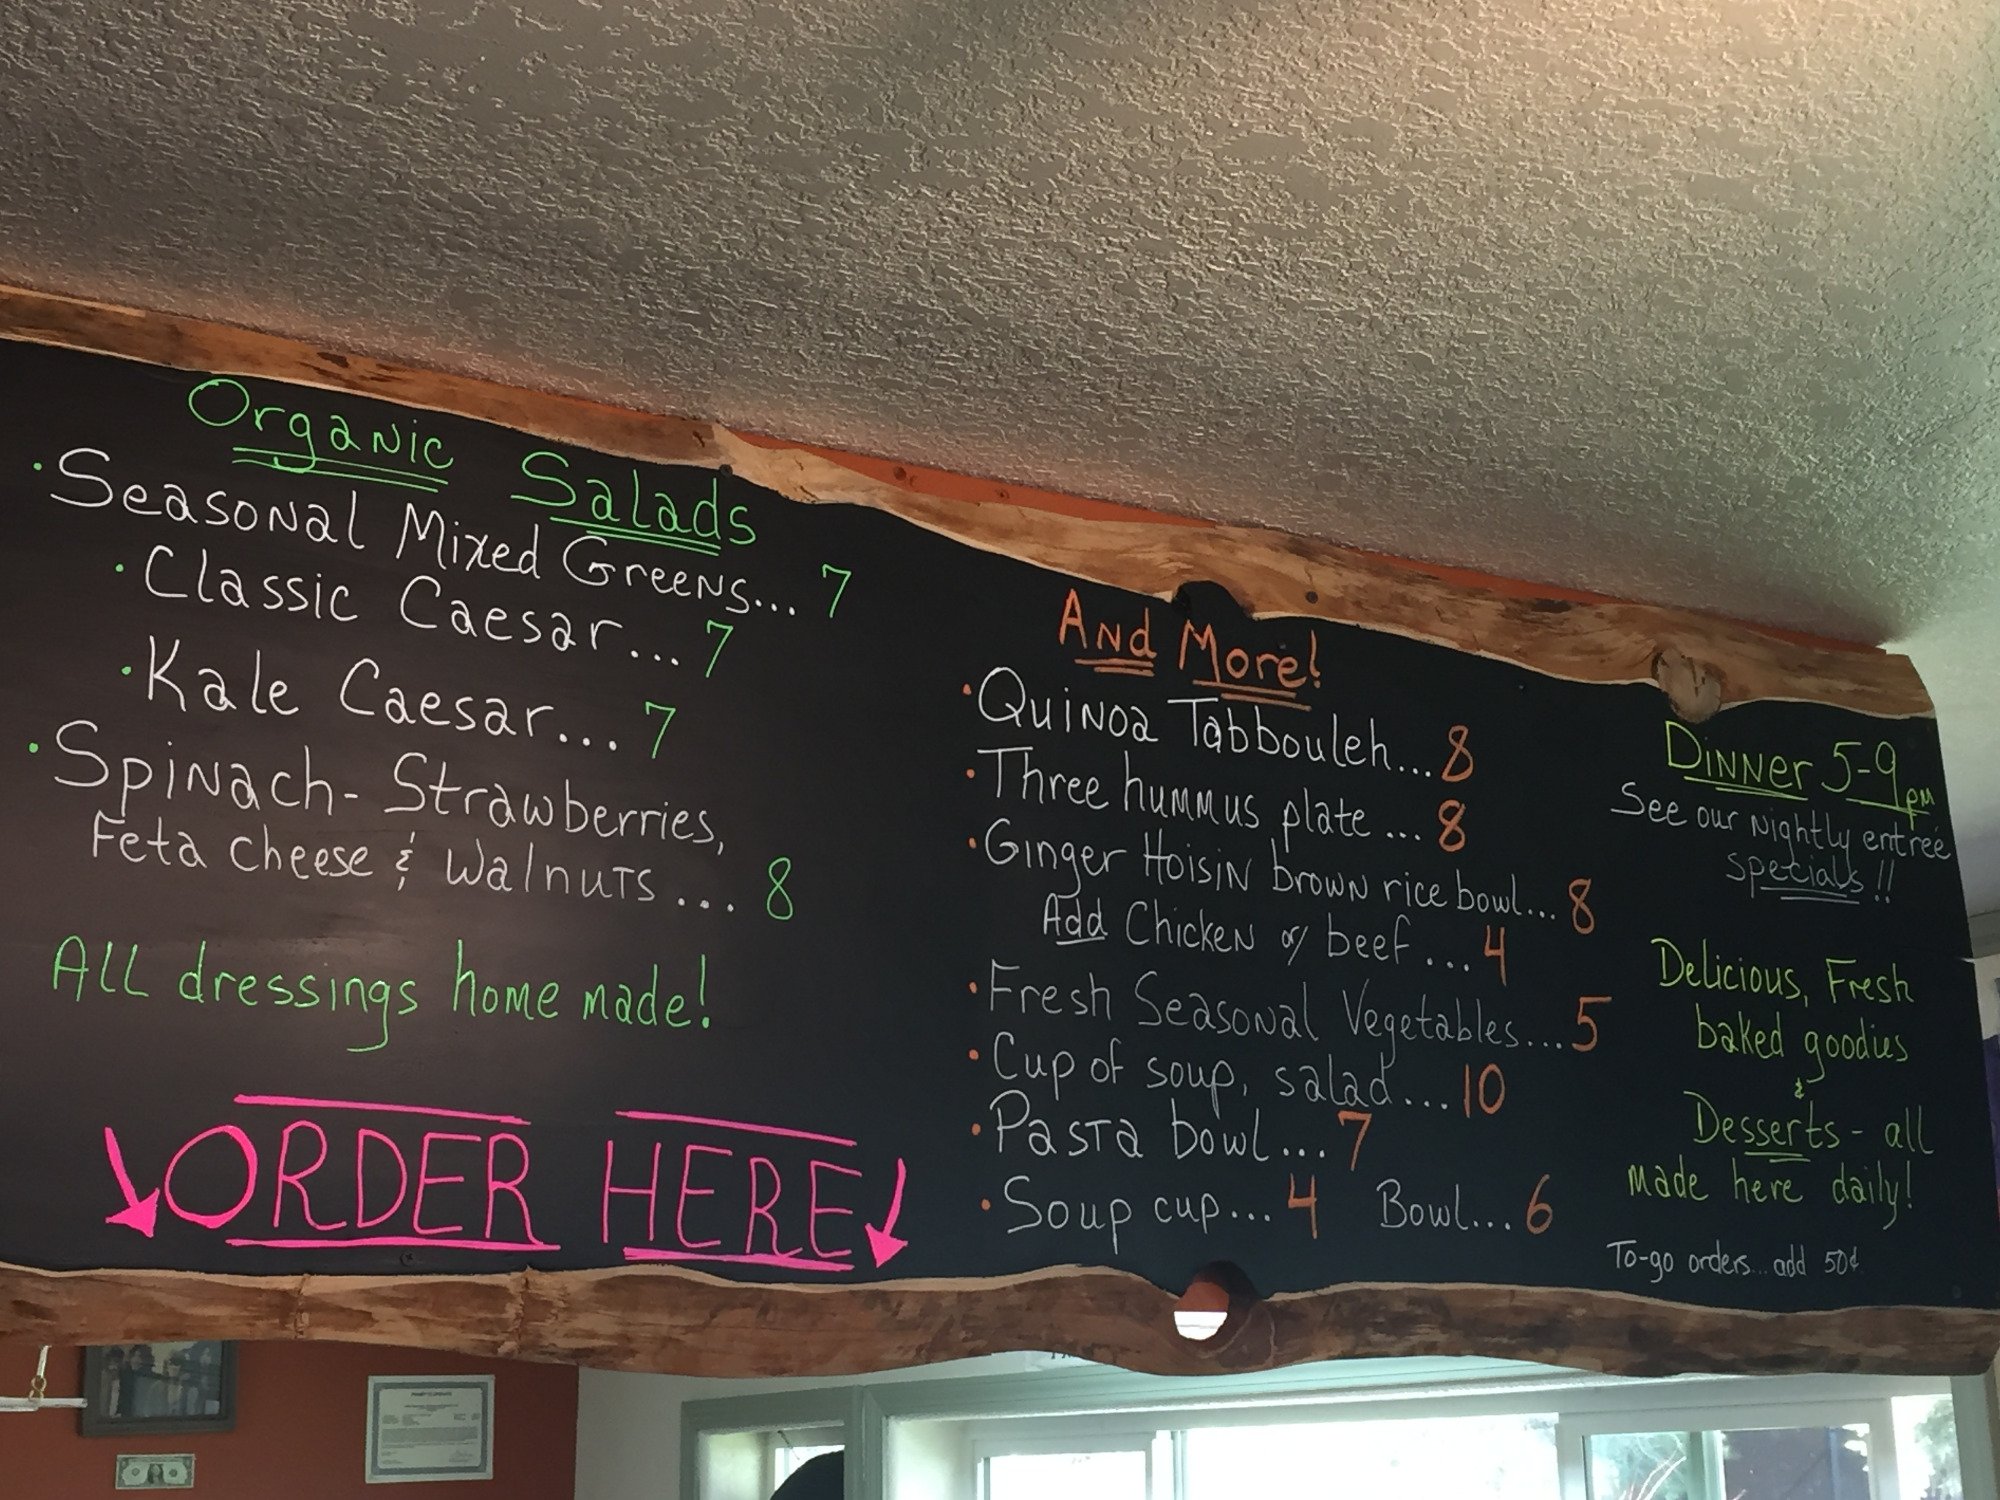 Organic Salads
· Seasonal Mixed Greens... 7
· Classic Caesar... 7
· Kale Caesar... 7
· Spinach- Strawberries,
Feta cheese & Walnuts... 8
All dressings home made!
ORDER HERE
And More!
· Quinoa Tabbouleh... 8
· Three hummus plate... 8
· Ginger Hoisin brown rice bowl... 8
Add Chicken or beef... 4
· Fresh Seasonal Vegetables... 5
· Cup of soup, salad... 10
· Pasta bowl... 7
· Soup cup... 4 Bowl... 6
Dinner 5-9 pm
See our nightly entrée
specials!!
Delicious, Fresh
baked goodies
&
Desserts - all
made here daily!
To-go orders... add 50¢